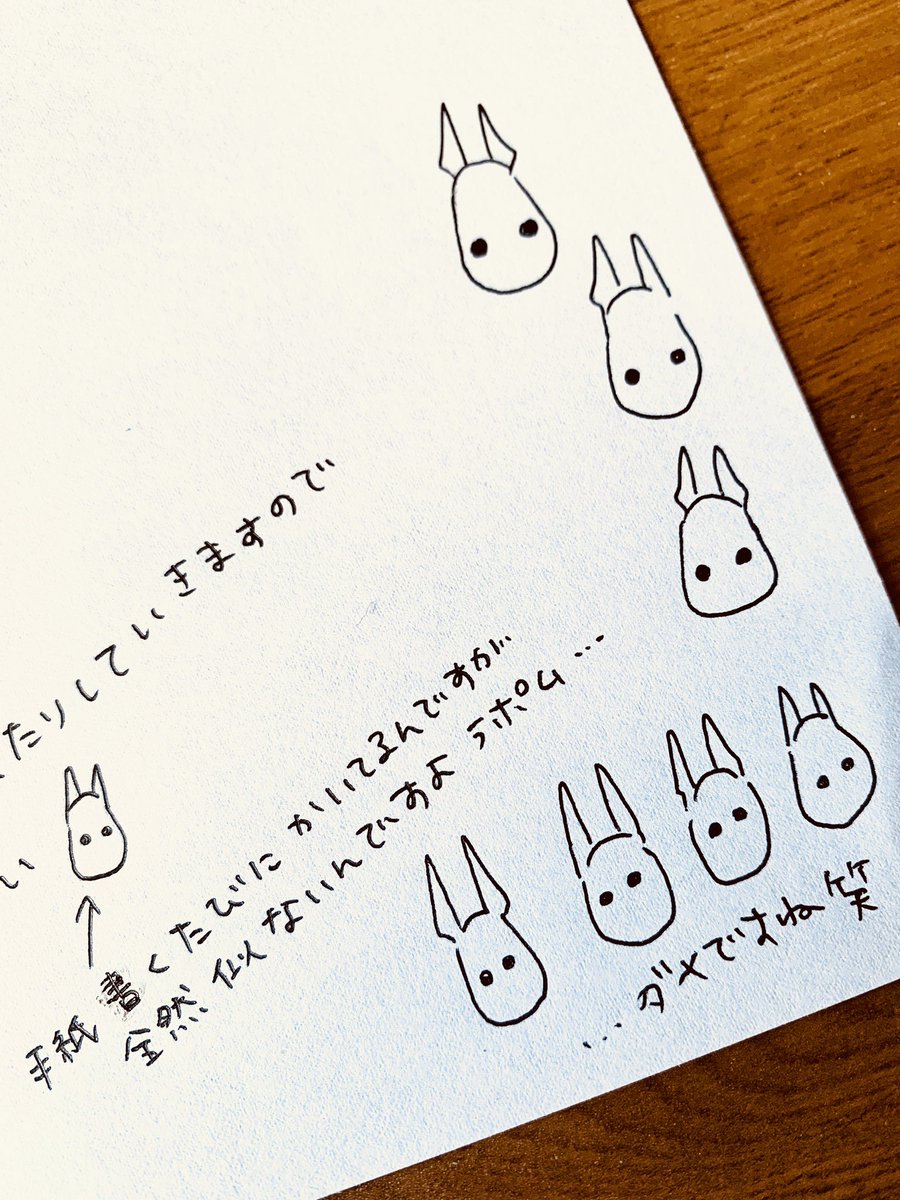 たりしていきますので
い
手紙書くたびにかいてるんですが
全然似ないんですよラポム...
...ダメですね笑